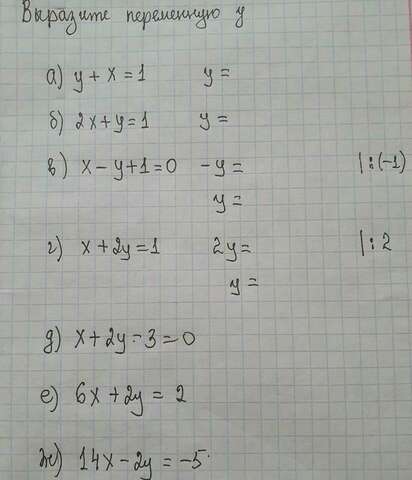 Выразите переменную y
а) y + x = 1 y =
б) 2x + y = 1 y =
в) x - y + 1 = 0 -y = |:(-1)
y =
г) x + 2y = 1 2y = |:2
y =
д) x + 2y - 3 = 0
е) 6x + 2y = 2
ж) 14x - 2y = -5